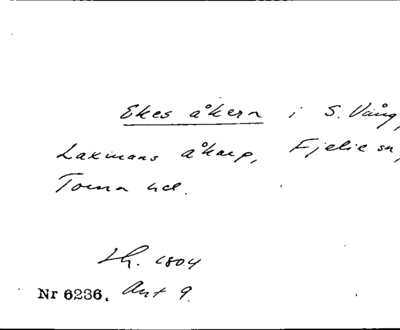 Ekes åkern i S. Vång,
Laxmans åkarp, Fjelie sn,
Torna hd.
Lh. 1804
Nr 6236. Akt 9.